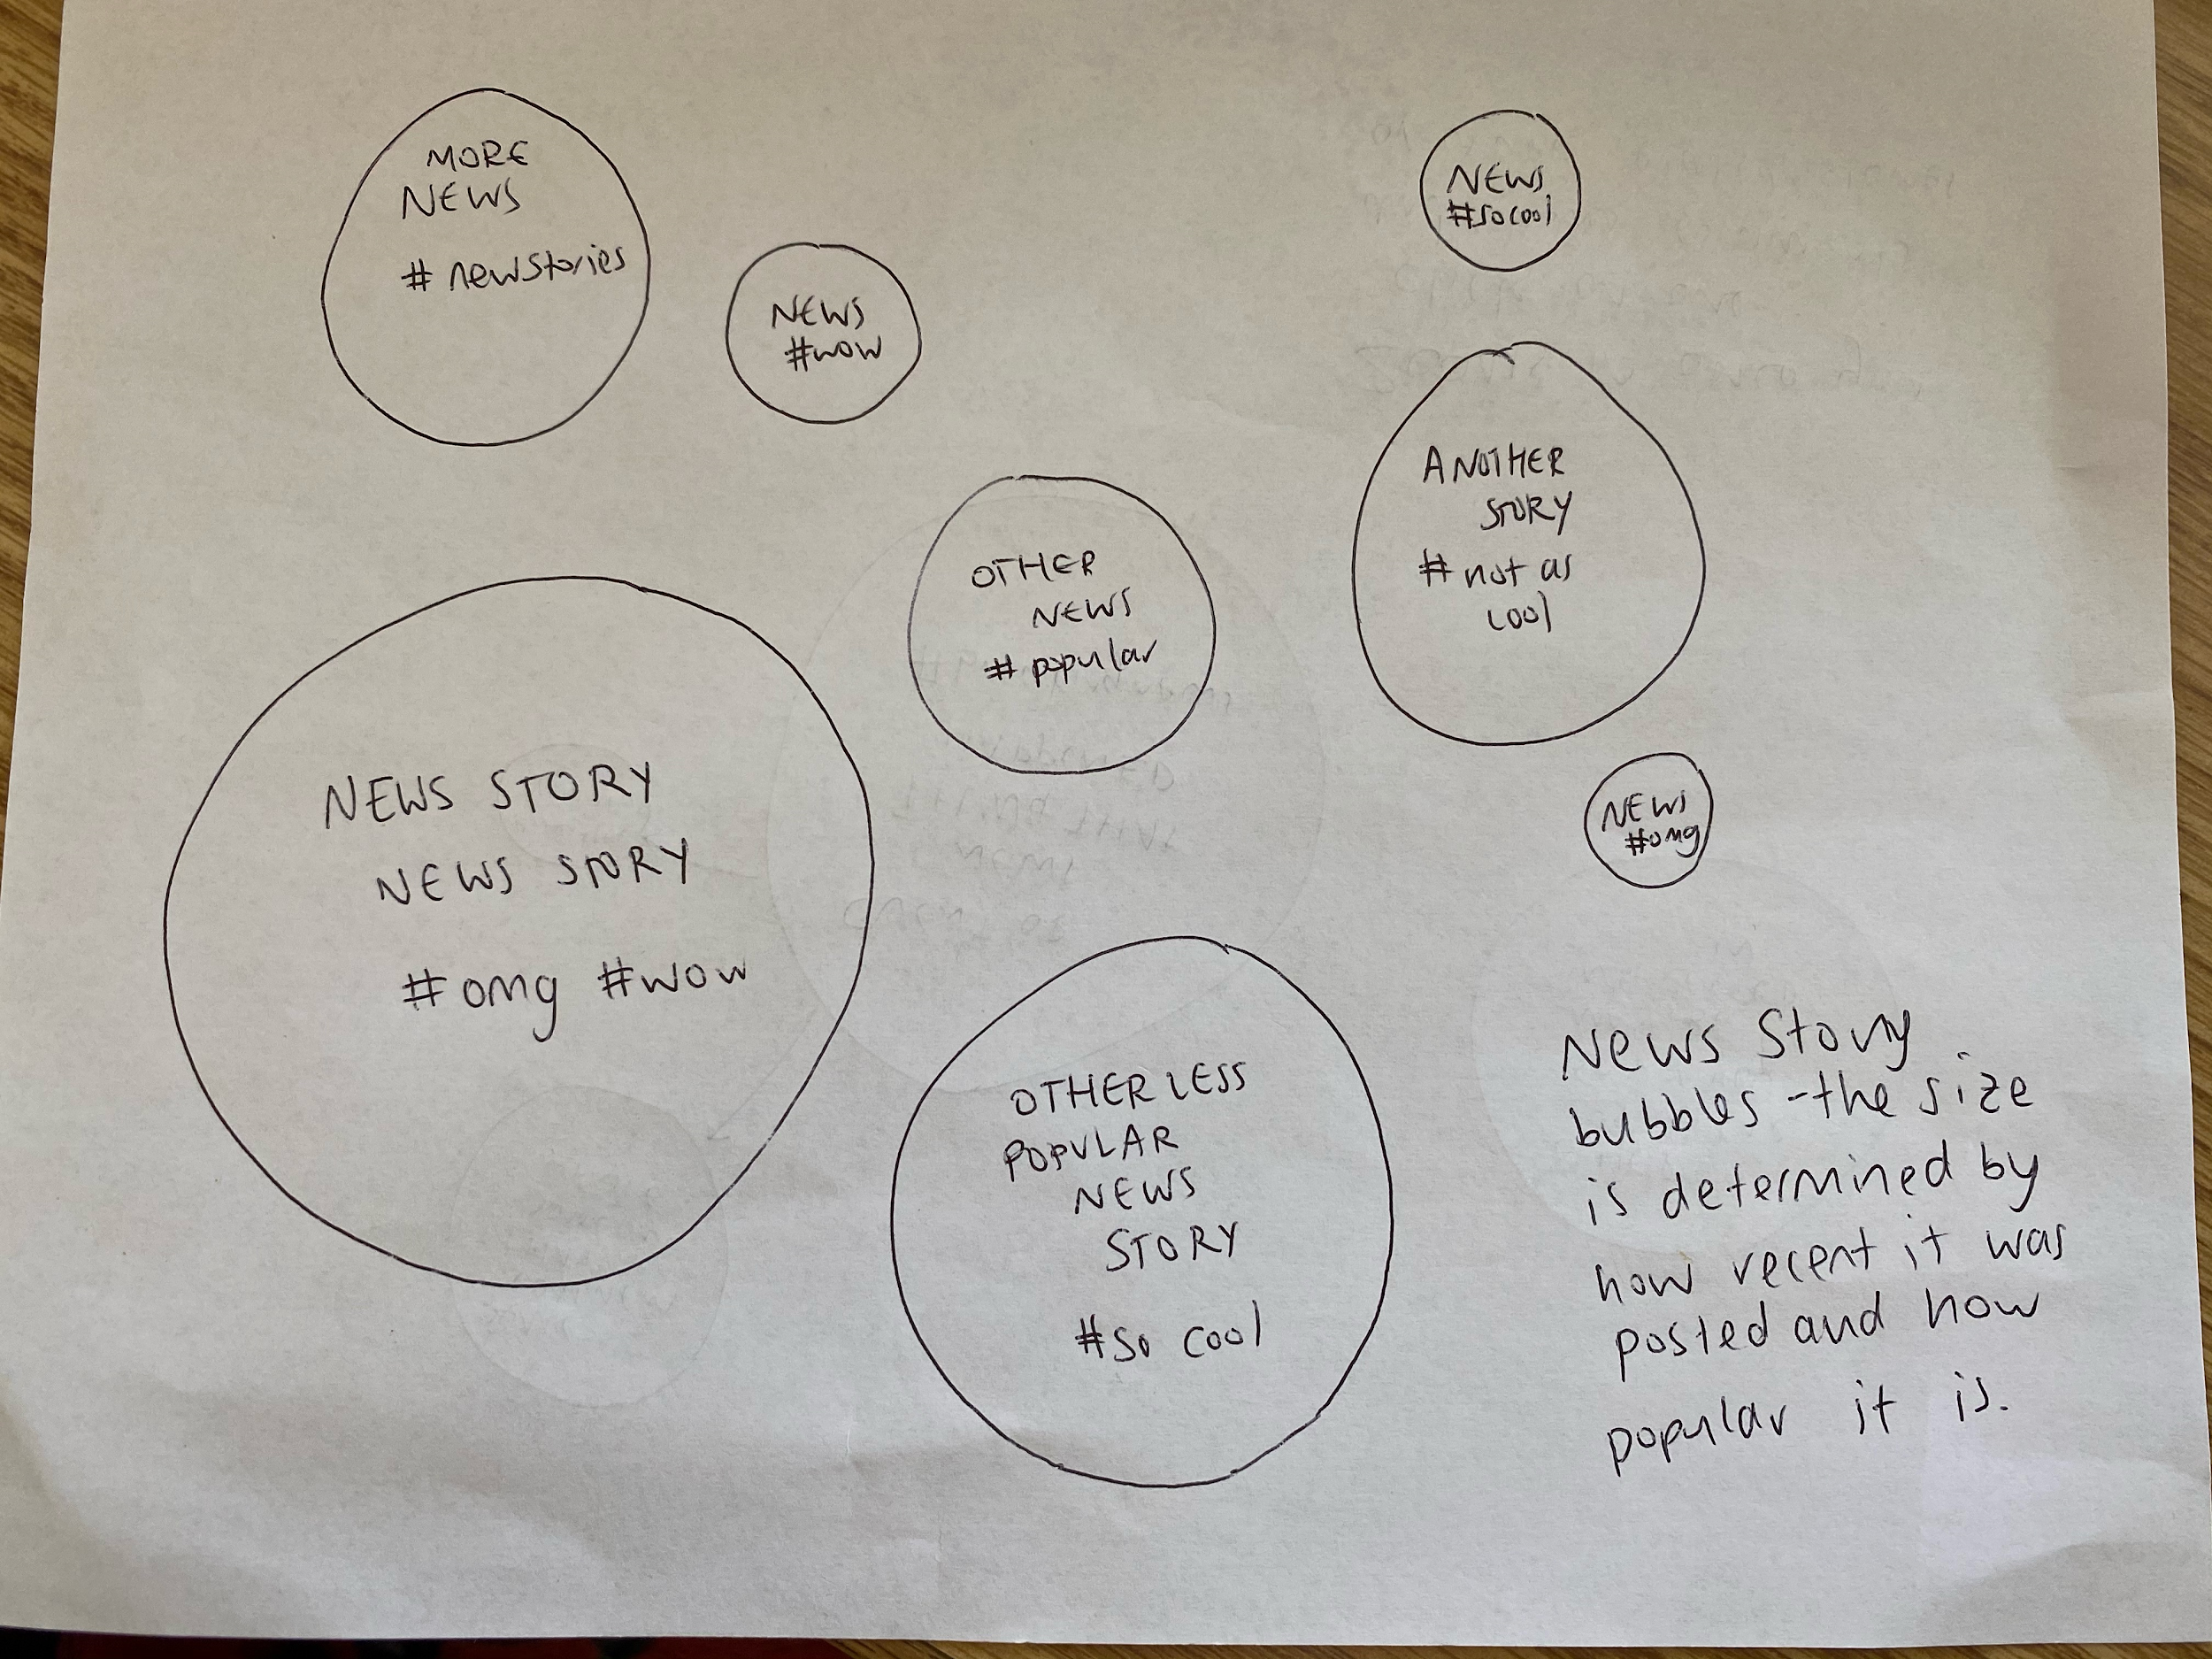 MORE
NEWS
# newstories
NEWS
#wow
NEWS
#socool
ANOTHER
STORY
# not as
cool
OTHER
NEWS
# popular
NEWS STORY
NEWS STORY
#omg #wow
NEWS
#omg
OTHER LESS
POPULAR
NEWS
STORY
#so cool
News Story
bubbles - the size
is determined by
how recent it was
posted and how
popular it is.